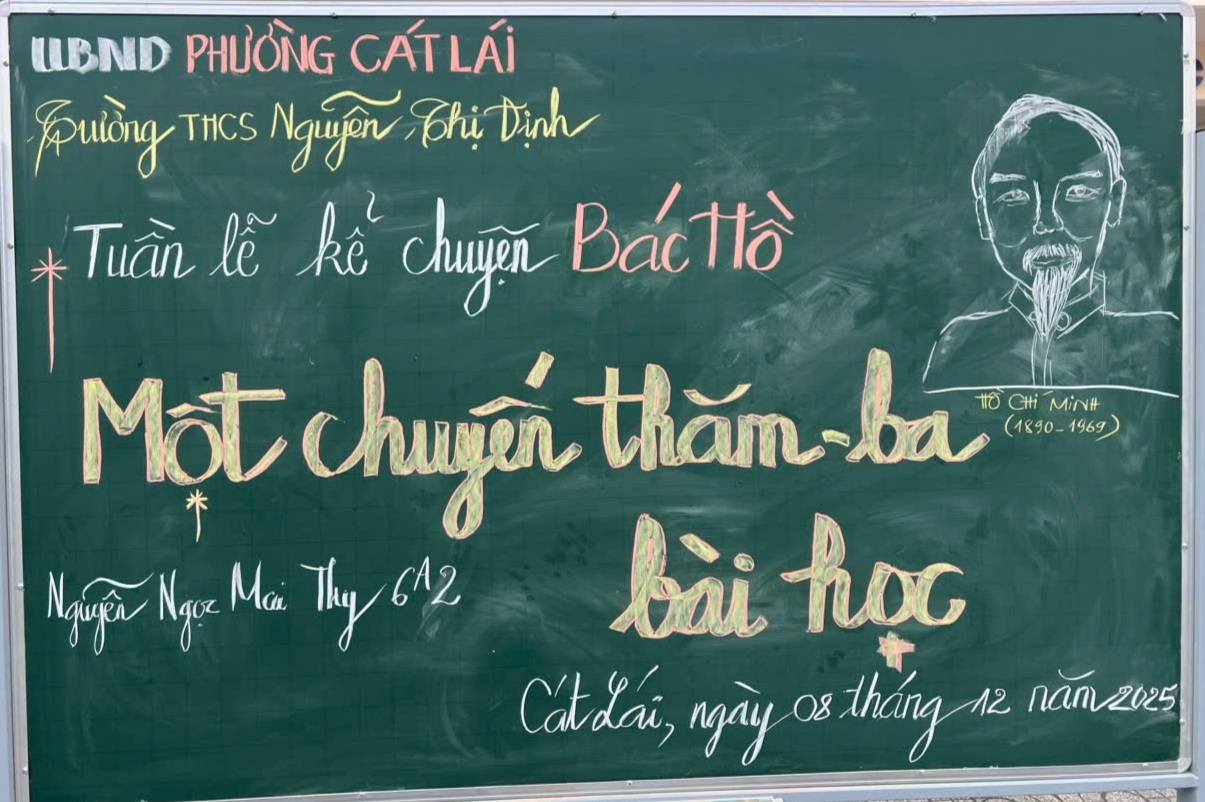 UBND PHƯỜNG CÁT LÁI
Trường THCS Nguyễn Thị Định
Tuần lễ kể chuyện Bác Hồ
HỒ CHÍ MINH
(1890-1969)
Một chuyến thăm-ba
bài học
Nguyễn Ngọc Mai Thy 6A2
Cát Lái, ngày 08 tháng 12 năm 2025